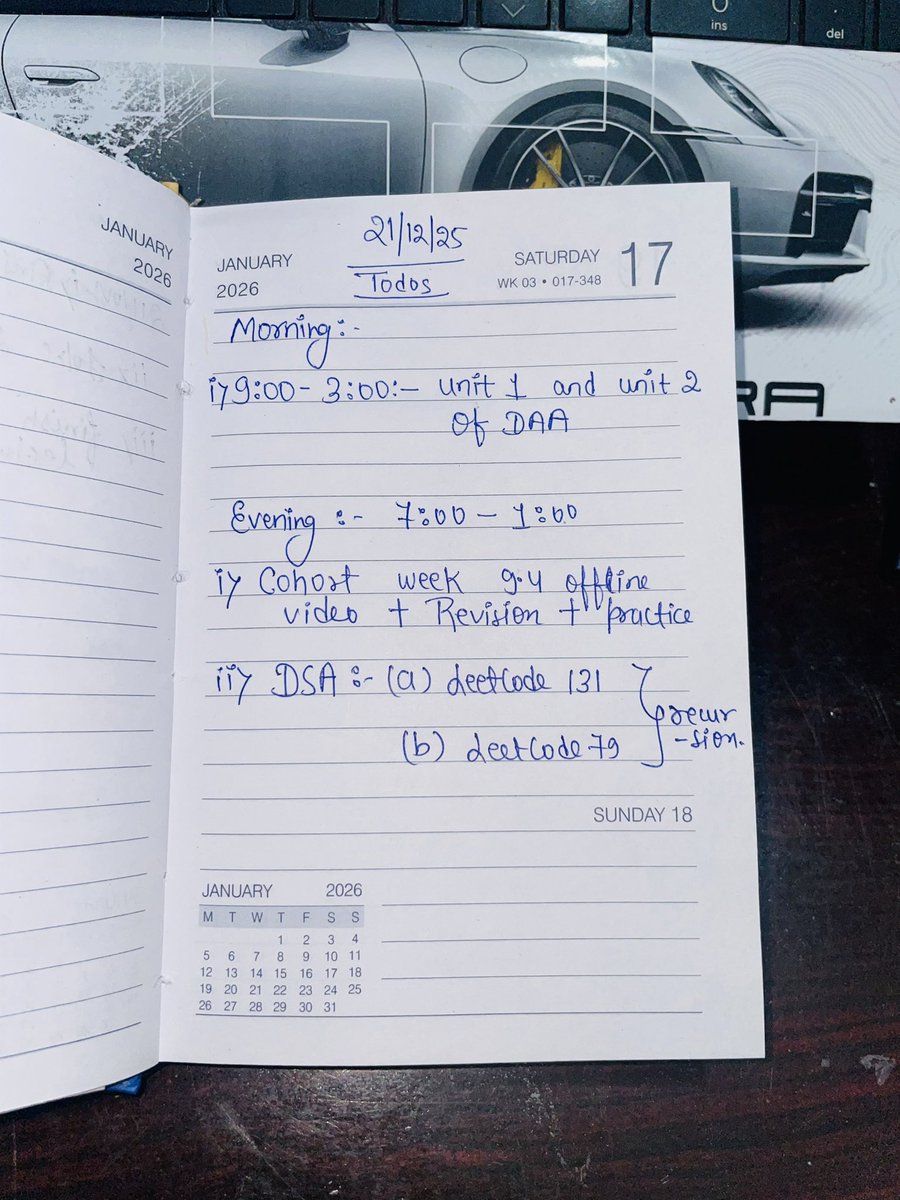 ins
del
RA
JANUARY
2026
21/12/25
Todos
JANUARY
2026
SATURDAY 17
WK 03 • 017-348
Morning:-
i> 9:00 - 3:00:- unit 1 and unit 2
Of DAA
Evening :- 7:00 - 1:00
i> Cohort week 9.4 offline
video + Revision + practice
ii> DSA :- (a) LeetCode 131
(b) LeetCode 79
recur
-sion.
SUNDAY 18
JANUARY 2026
M T W T F S S
1 2 3 4
5 6 7 8 9 10 11
12 13 14 15 16 17 18
19 20 21 22 23 24 25
26 27 28 29 30 31